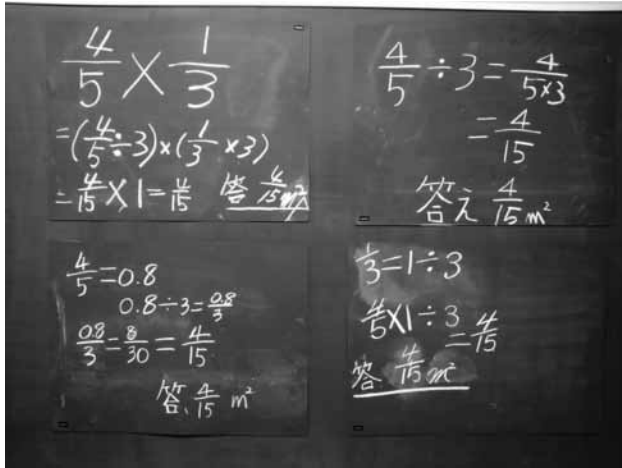 4/5 × 1/3
=(4/5÷3)×(1/3×3)
=4/15×1=4/15 答 4/15m²
4/5÷3=4/5×3
=4/15
答え 4/15m²
4/5=0.8
0.8÷3=0.8/3
0.8/3=8/30=4/15
答、4/15 m²
1/3=1÷3
4/5×1÷3
=4/15
答 4/15m²